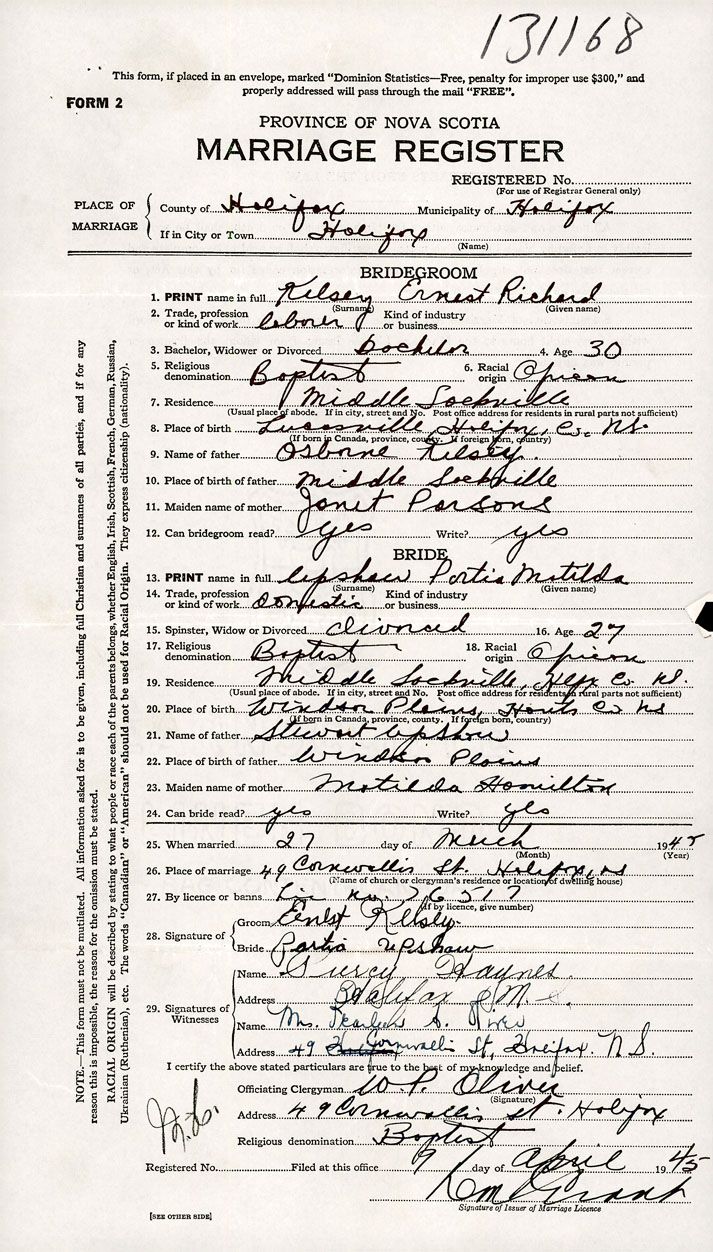 131168
This form, if placed in an envelope, marked "Dominion Statistics—Free, penalty for improper use $300," and
properly addressed will pass through the mail "FREE".
FORM 2
PROVINCE OF NOVA SCOTIA
MARRIAGE REGISTER
REGISTERED No.
(For use of Registrar General only)
PLACE OF MARRIAGE
County of Halifax Municipality of Halifax
If in City or Town Halifax
(Name)
BRIDEGROOM
1. PRINT name in full Kelsey Ernest Richard
(Surname) (Given name)
2. Trade, profession or kind of work laborer Kind of industry or business
3. Bachelor, Widower or Divorced bachelor 4. Age 30
5. Religious denomination Baptist 6. Racial origin African
7. Residence Middle Sackville
(Usual place of abode. If in city, street and No. Post office address for residents in rural parts not sufficient)
8. Place of birth Lucasville, Halifax, Co. NS.
(If born in Canada, province, county. If foreign born, country)
9. Name of father Osborne Kelsey.
10. Place of birth of father Middle Sackville
11. Maiden name of mother Janet Parsons
12. Can bridegroom read? yes Write? yes
BRIDE
13. PRINT name in full Upshaw Portia Matilda
(Surname) (Given name)
14. Trade, profession or kind of work Domestic Kind of industry or business
15. Spinster, Widow or Divorced divorced 16. Age 27
17. Religious denomination Baptist 18. Racial origin African
19. Residence Middle Sackville, Hfx Co. NS.
(Usual place of abode. If in city, street and No. Post office address for residents in rural parts not sufficient)
20. Place of birth Windsor Plains, Hants Co NS
(If born in Canada, province, county. If foreign born, country)
21. Name of father Stewart Upshaw
22. Place of birth of father Windsor Plains
23. Maiden name of mother Matilda Hamilton
24. Can bride read? yes Write? yes
25. When married 27 day of March 1945
(Month) (Year)
26. Place of marriage 49 Cornwallis St. Halifax, NS
(Name of church or clergyman's residence or location of dwelling house)
27. By licence or banns Lic no. 76517
(If by licence, give number)
28. Signature of Groom Ernest Kelsey.
Bride Portia Upshaw
29. Signatures of Witnesses
Name Haynes.
Address Halifax
Name Mrs. S.
Address 49 Cornwallis St, Halifax. N.S.
I certify the above stated particulars are true to the best of my knowledge and belief.
Officiating Clergyman W. P. Oliver
(Signature)
Address 49 Cornwallis st. Halifax
Religious denomination Baptist
Registered No. Filed at this office 9 day of April 1945
Grant
Signature of Issuer of Marriage Licence
[SEE OTHER SIDE]
NOTE.—This form must not be mutilated. All information asked for is to be given, including full Christian and surnames of all parties, and if for any
reason this is impossible, the reason for the omission must be stated.
RACIAL ORIGIN will be described by stating to what people or race each of the parents belongs, whether English, Irish, Scottish, French, German, Russian,
Ukrainian (Ruthenian), etc. The words "Canadian" or "American" should not be used for Racial Origin. They express citizenship (nationality).